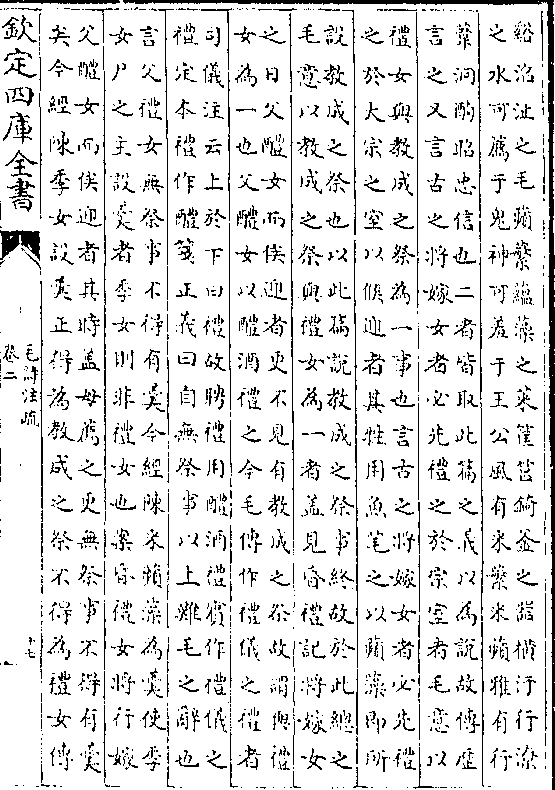 谿沼沚之毛蘋蘩藴藻之菜筐筥錡釜之器橫汙行潦
之水可薦于鬼神可羞于王公風有采蘩采蘋雅有行
葦泂酌昭忠信也二者皆取此篇之義以為說故傳歴
言之又言古之將嫁女者必先禮之於宗室者毛意以
禮女與教成之祭為一事也言古之將嫁女者必先禮
之於大宗之室以俟迎者其牲用魚芼之以蘋藻即所
說教成之祭也以此篇說教成之祭事終故於此總之
毛意以教成之祭與禮女為一者蓋見昏禮記將嫁女
之日父醴女而俟迎者更不見有教成之祭故謂與禮
女為一也父醴女以醴酒禮之今毛傳作禮儀之禮者
司儀注云上於下曰禮故聘禮用醴酒禮賓作禮儀之
禮定本禮作醴箋正義曰自無祭事以上難毛之辭也
言父禮女無祭事不得有羹今經陳采蘋藻為羹使季
女尸之主設羹者季女則非禮女也案昏禮女將行嫁
父醴女而俟迎者其時蓋母薦之更無祭事不得有羹
矣今經陳季女設羹正得為教成之祭不得為禮女傳
欽定四庫全書
毛詩注疏
卷二
十七